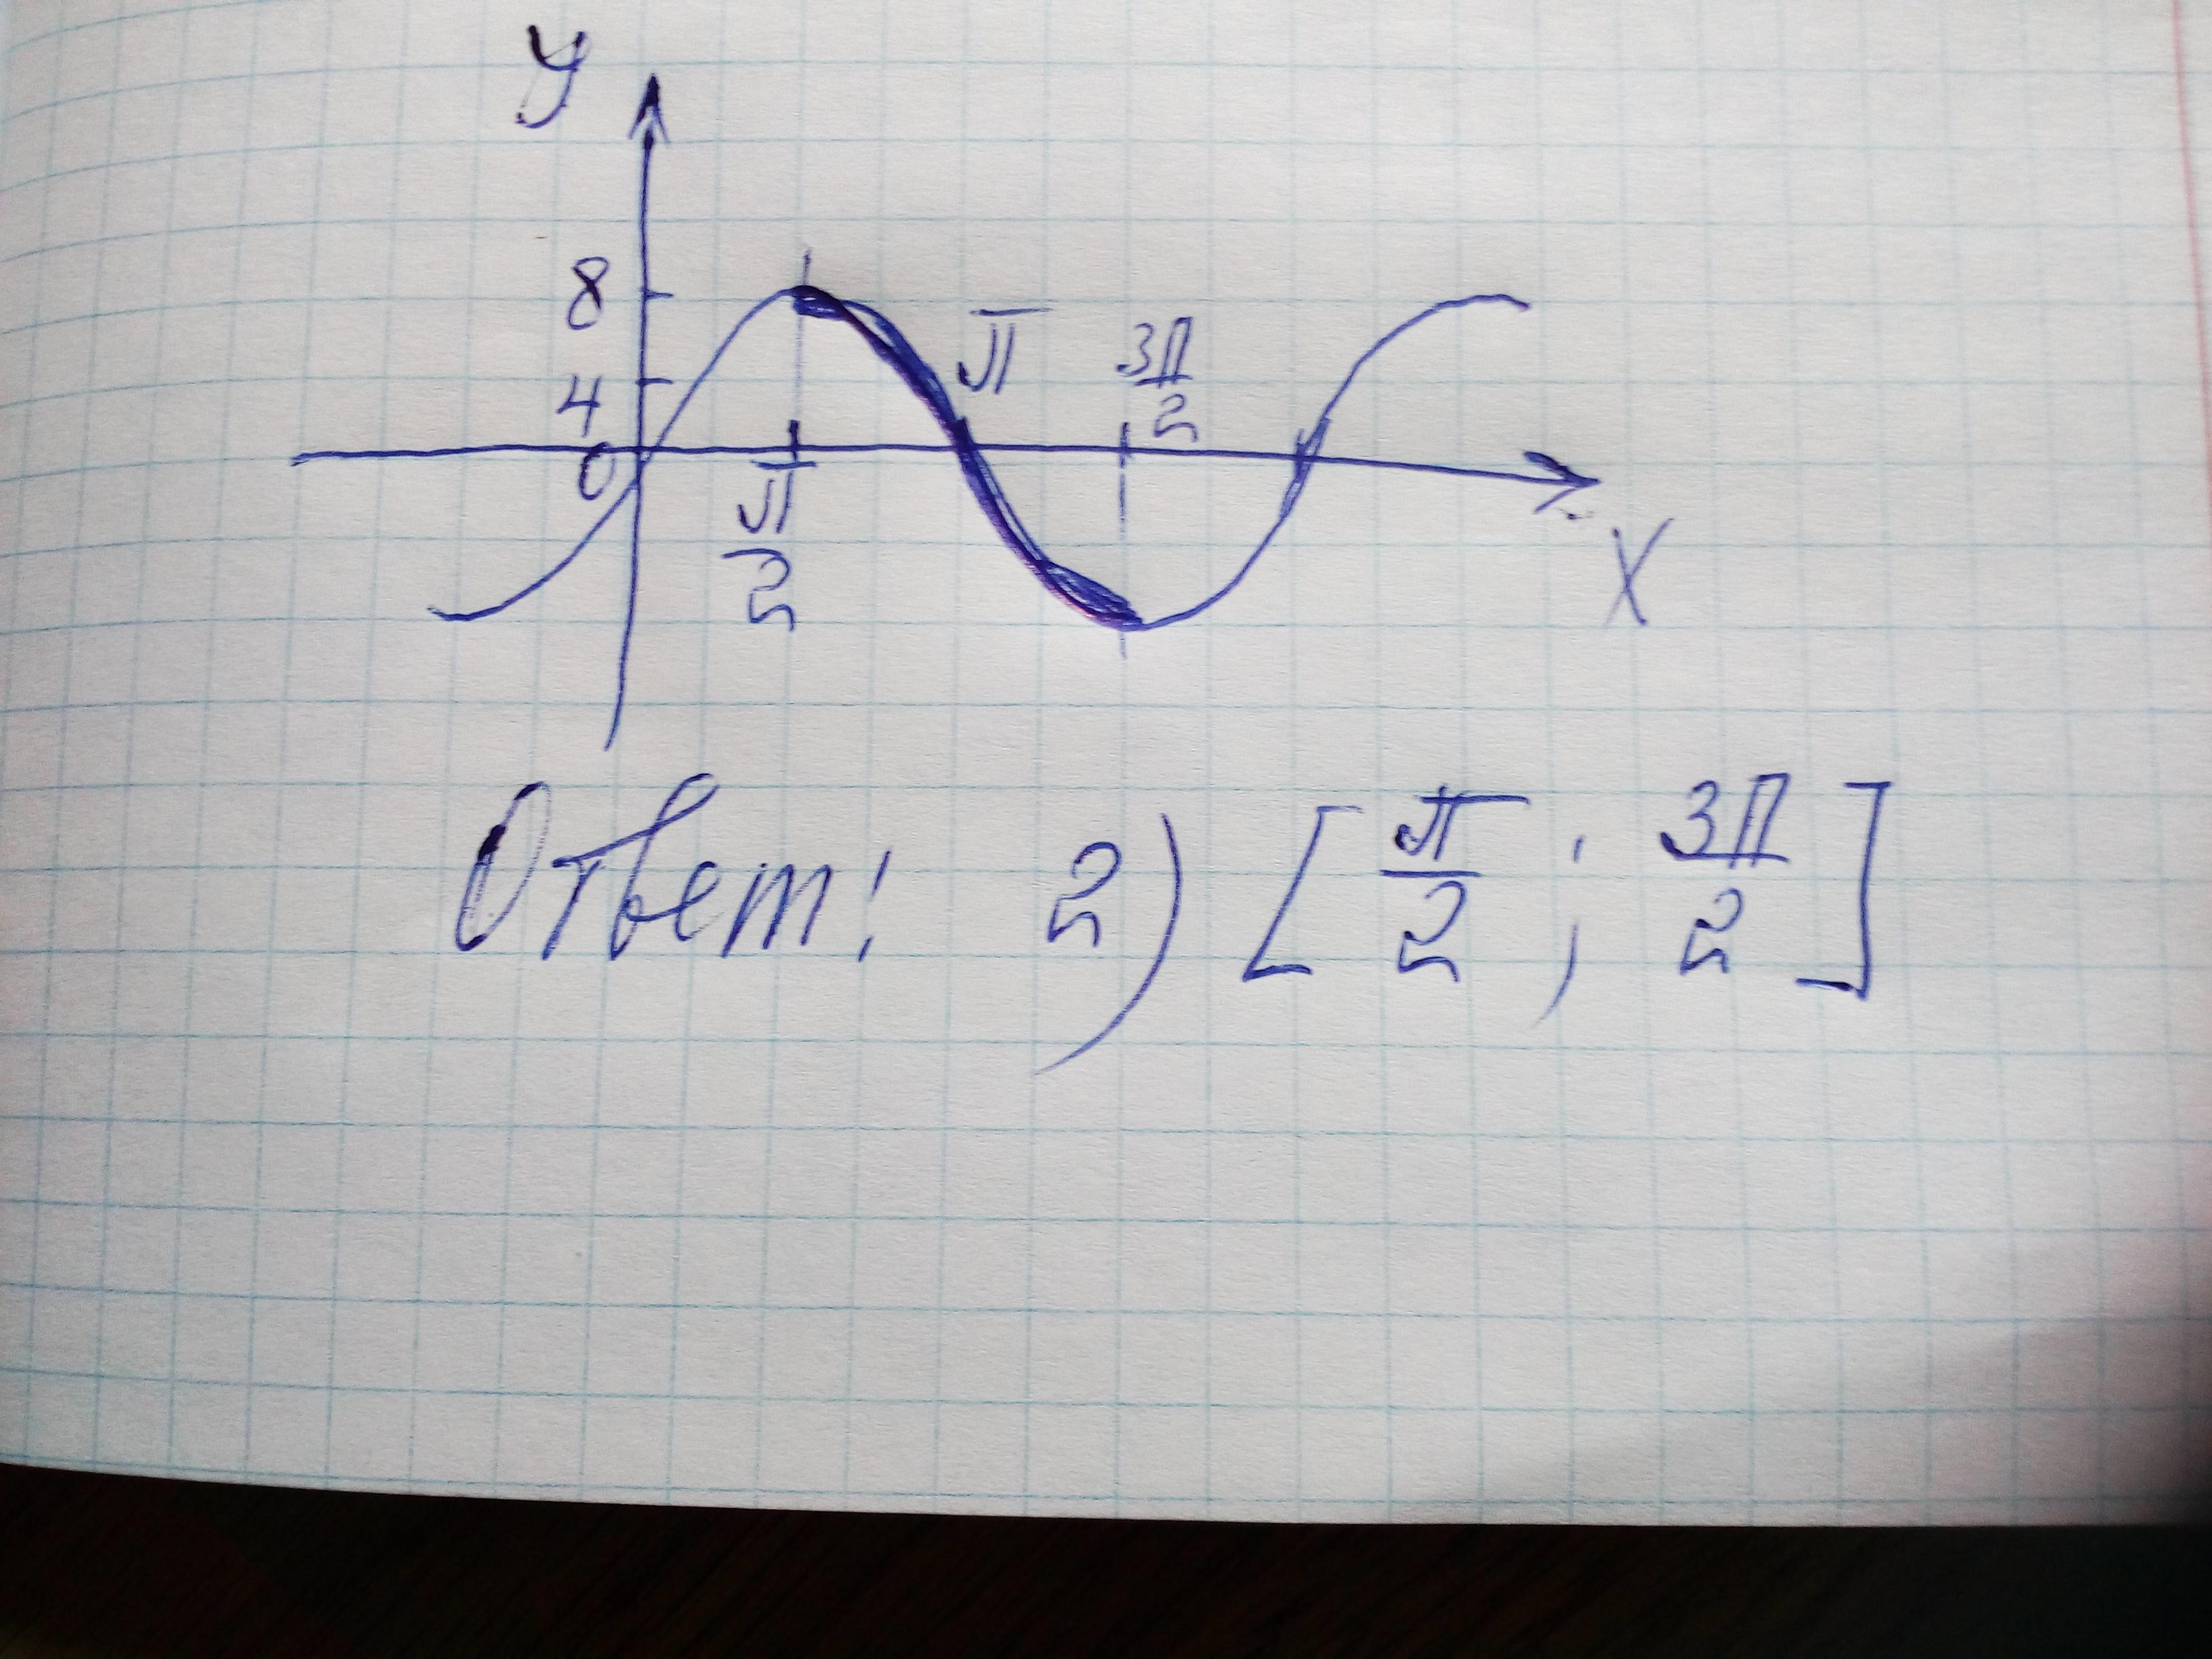 y
8
4
0
π/2
π
3π/2
x
Ответ: 2) [π/2; 3π/2]